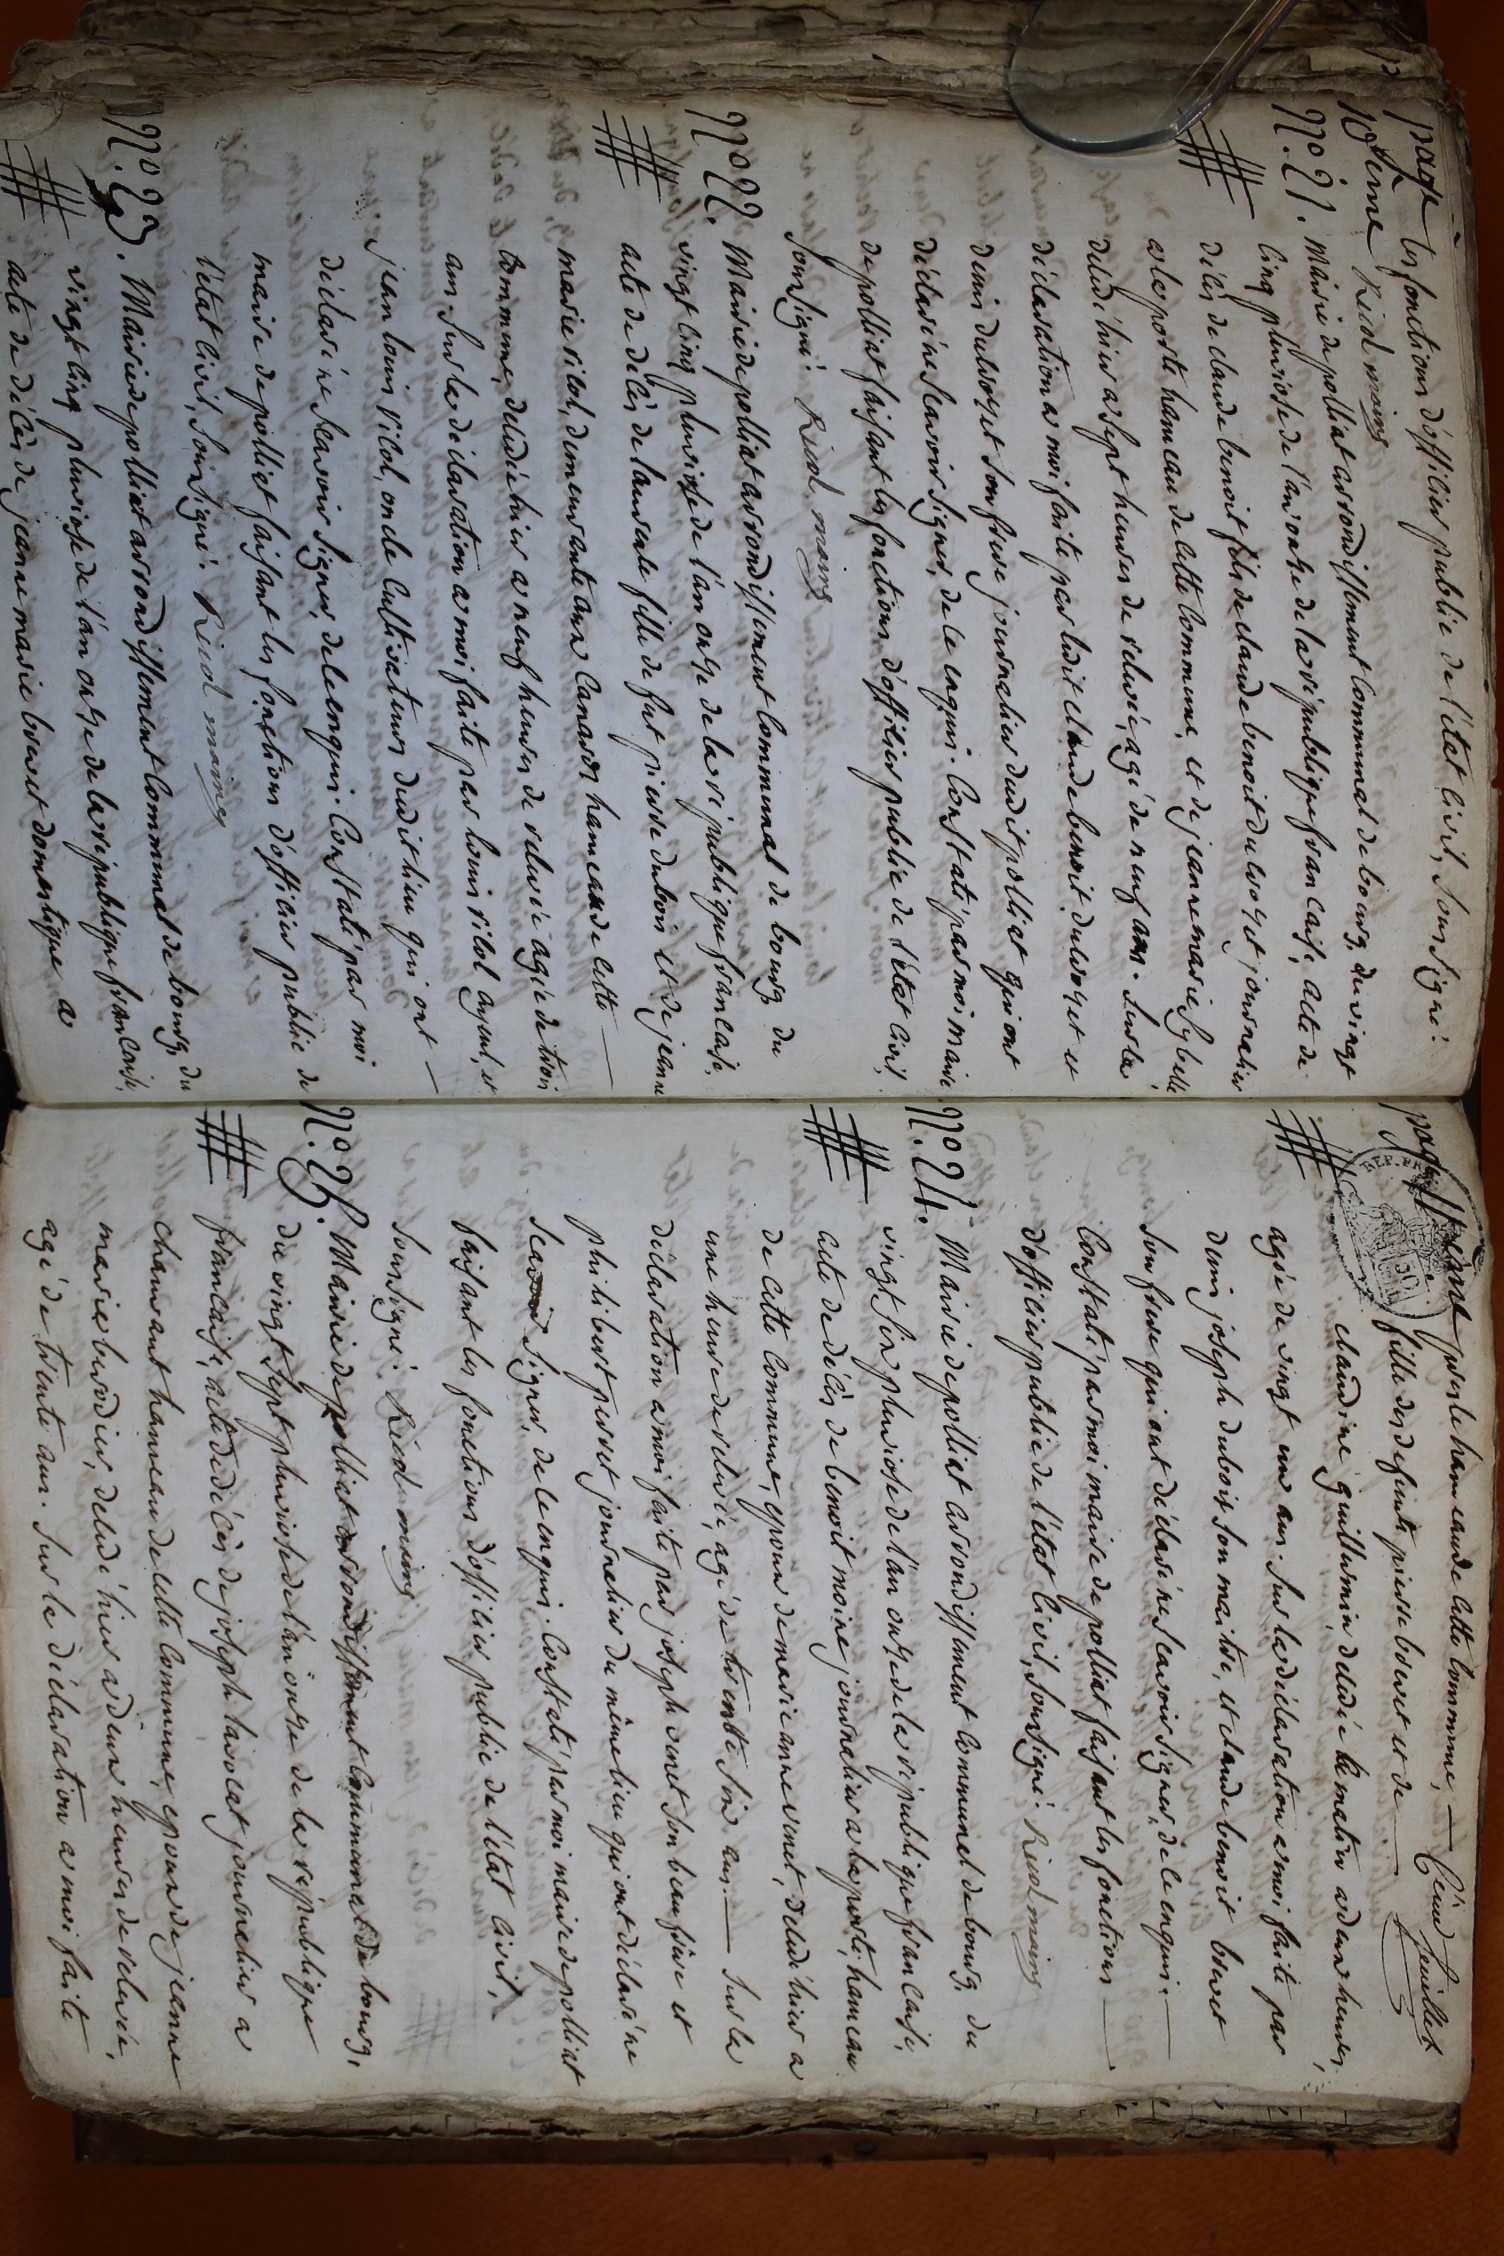 page les fonctions d'officier public de l'état civil, soussigné:
10eme Riod maire
No. 21. Mairie de polliat arrondissement communal de bourg, du vingt
cinq pluviose de l'an onze de la république francaise, acte de
décès de claude benoit fils de claude benoit journalier
a la poste hameau de cette commune, et de jeanne marie
décédé hier a sept heures de relevée, agé de neuf ans. sur la
déclaration a moi faite par ledit claude benoit et
denis son frere journalier dudit polliat qui ont
déclaré ne scavoir signer, de ce enquis. Constaté par moi maire
de polliat faisant les fonctions d'officier public de l'état civil,
soussigné: Riod maire
No. 22. Mairie de polliat arrondissement communal de bourg, du
vingt cinq pluviose de l'an onze de la république francaise,
acte de décès de laurente fille de fut pierre dubois et de jeanne
marie vilol, demeurante aux hameau de cette
commune, décédée hier a neuf heures de relevée agée de trois
ans. sur la déclaration a moi faite par louis vilol ayeul, et
jean louis vilol, oncle cultivateurs dudit lieu qui ont
déclaré ne scavoir signer, de ce enquis. Constaté par moi
maire de polliat faisant les fonctions d'officier public de
l'état civil, soussigné: Riod maire
No. 23. Mairie de polliat arrondissement communal de bourg, du
vingt cinq pluviose de l'an onze de la république francaise,
acte de décès de jeanne marie bevet domestique a
page 11eme poste hameau de cette commune,
feuillet
fille des defunts pierre bevet et de
claudine guillermin, décédée le matin a deux heures,
agée de vingt un ans. sur la déclaration a moi faite par
denis joseph dubois son maitre, et claude benoit bevet
son frere qui ont déclaré ne scavoir signer, de ce enquis.
Constaté par moi maire de polliat faisant les fonctions
d'officier public de l'état civil, soussigné: Riod maire
No. 24. Mairie de polliat arrondissement communal de bourg, du
vingt six pluviose de l'an onze de la république francaise,
acte de décès de benoit moine journalier a la poste, hameau
de cette commune, epoux de marie anne venet, décédé hier a
une heure de relevée, agé de trente six ans. sur la
déclaration a moi faite par joseph venet son beau frere et
philibert perret journalier du même lieu qui ont déclaré ne
scavoir signer, de ce enquis. Constaté par moi maire de polliat
faisant les fonctions d'officier public de l'état civil,
soussigné: Riod maire
No. 25. Mairie de polliat arrondissement communal de bourg,
du vingt sept pluviose de l'an onze de la république
francaise, acte de décès de joseph journalier a
hameau de cette commune, epoux de jeanne
marie, décédé hier a deux heures de relevée,
agé de trente ans. sur la déclaration a moi faite